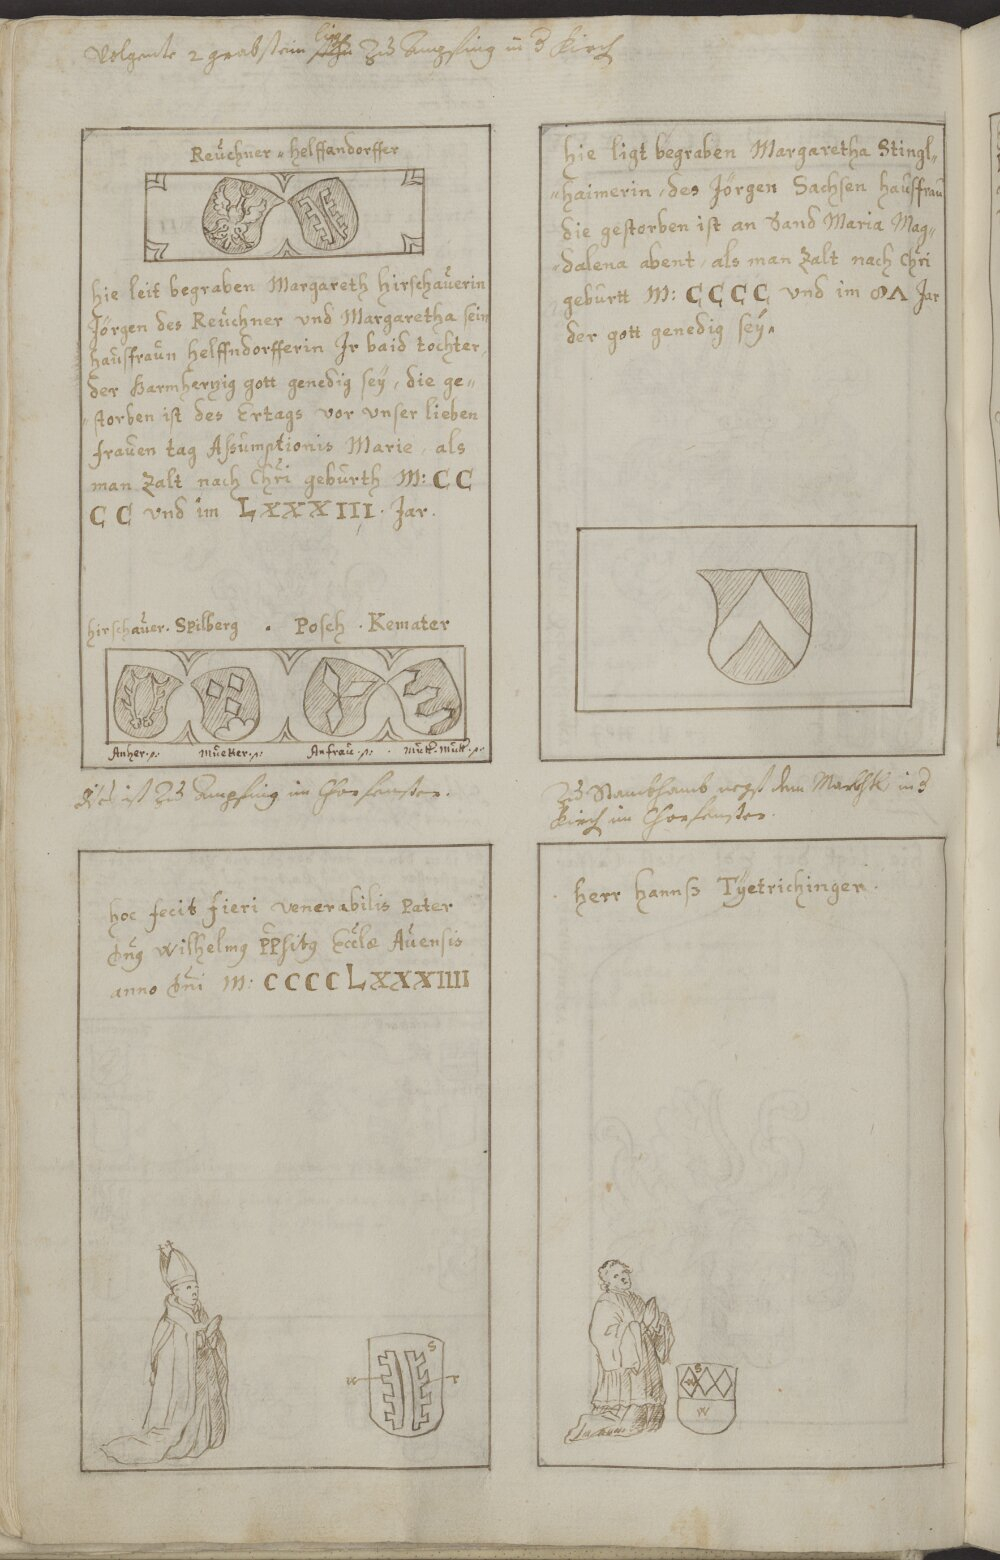 Volgente 2 grabstein ligen Zu Ampfing in d Kirch
Reüchner - Helffandorffer
Hie leit begraben Margareth Hirschaüerin
Jörgen des Reüchner vnd Margaretha sein
haüsfraün Helffndorfferin Jr baid tochter,
der Barmherzig gott genedig seÿ, die ge„
„storben ist des Ertags vor vnser lieben
fraüen tag Assümptionis Marie, als
man Zalt nach Chri gebürth M: CC
CC vnd im LXXXIII. Jar.
Hirschaüer. Spilberg . Posch . Kemater
Anher. Müetter. Anfraü. Müt. Mütt.
Hie ligt begraben Margaretha Stingl„
„haimerin, des Jörgen Sachsen haüsfraü
die gestorben ist an Sand Maria Mag„
„dalena abent, als man Zalt nach Chri
gebürtt M: CCCC vnd im 87 Jar
der gott genedig seÿ.
Dis ist Zu Ampfing im Chorfenster.
hoc fecit fieri venerabilis Pater
dns Wilhelmg ppsitg Ecclæ Aüensis
anno dni M: CCCCLXXXIIII
S
Zu Stambhamb negst dem Marckhl, in d
Kirch im Chorfenster.
Herr Hannß Tÿetrichinger.
S
W
W